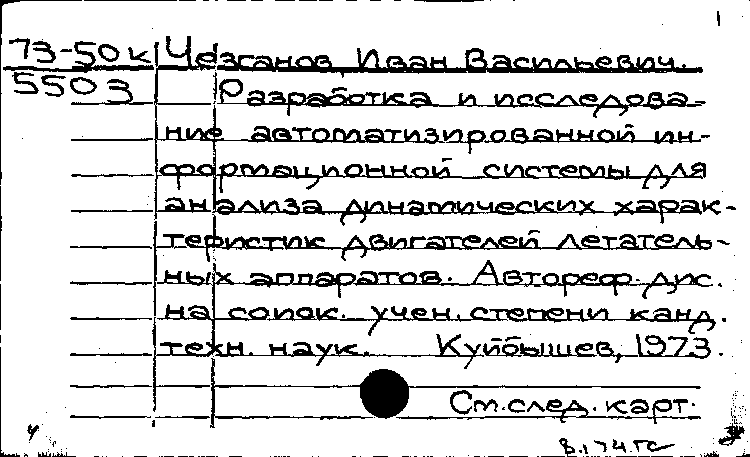 1
73-50к Чезганов Иван Васильевич.
5503 Разработка и исследова-
ние автоматизированной ин-
формационной системы для
анализа динамических харак-
теристик двигателей летатель-
ных аппаратов. Автореф. дис.
на соиск. учен. степени канд.
техн. наук. Куйбышев, 1973.
См. след. карт.